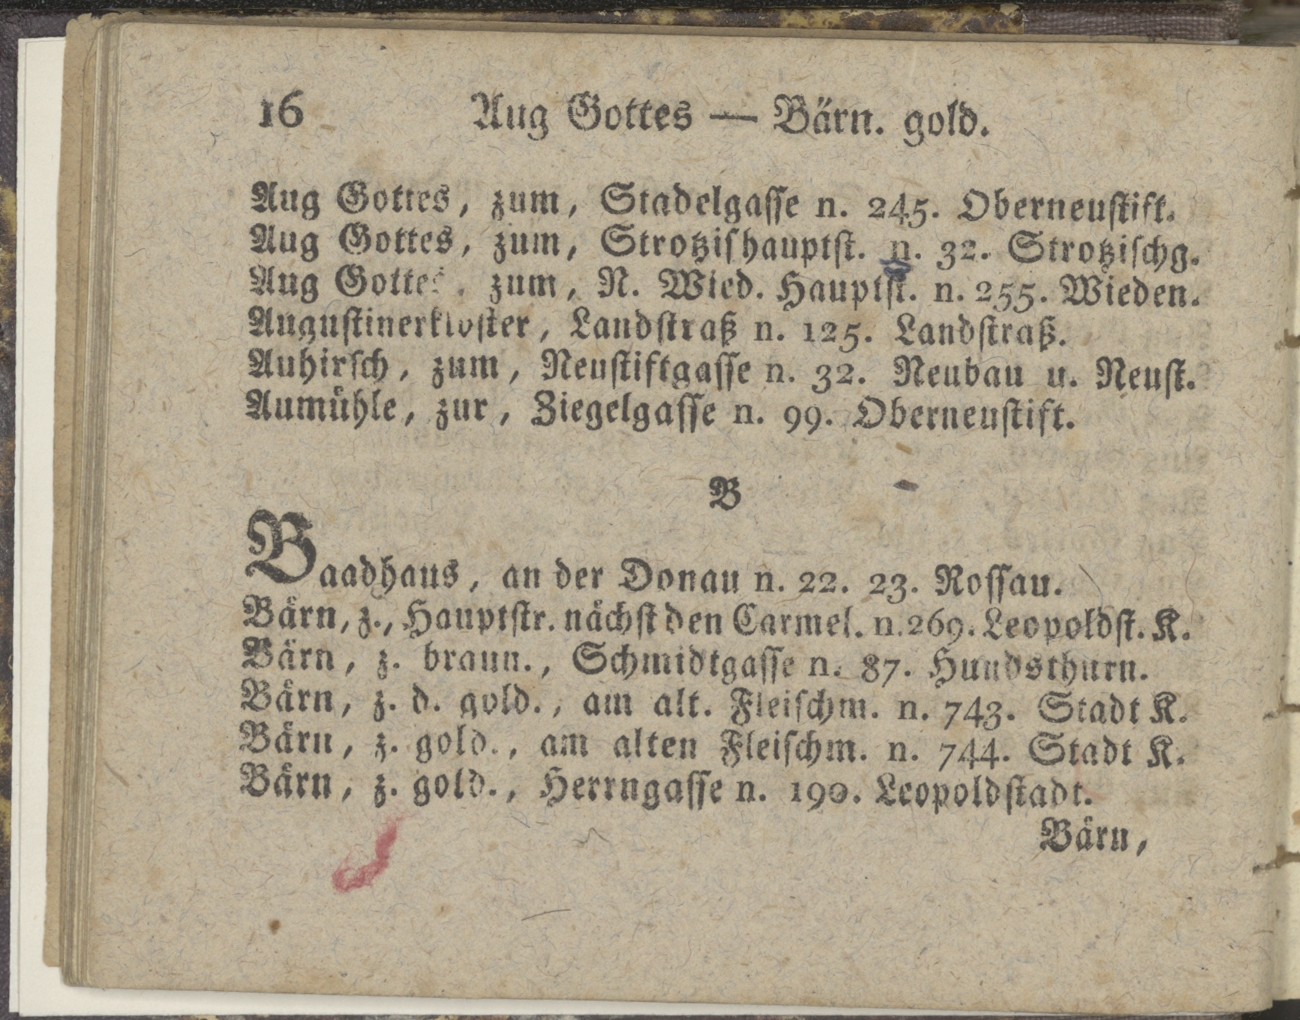 16 Aug Gottes — Bärn. gold.
Aug Gottes, zum, Stadelgasse n. 245. Oberneustift.
Aug Gottes, zum, Strotzishauptst. n. 32. Strotzischg.
Aug Gottes, zum, N. Wied. Hauptst. n. 255. Wieden.
Augustinerkloster, Landstraß n. 125. Landstraß.
Auhirsch, zum, Neustiftgasse n. 32. Neubau u. Neust.
Aumühle, zur, Ziegelgasse n. 99. Oberneustift.
B
Baadhaus, an der Donau n. 22. 23. Rossau.
Bärn, z., Hauptstr. nächst den Carmel. n. 269. Leopoldst. K.
Bärn, z. braun., Schmidtgasse n. 87. Hundsthurn.
Bärn, z. d. gold., am alt. Fleischm. n. 743. Stadt K.
Bärn, z. gold., am alten Fleischm. n. 744. Stadt K.
Bärn, z. gold., Herrngasse n. 190. Leopoldstadt.
Bärn,